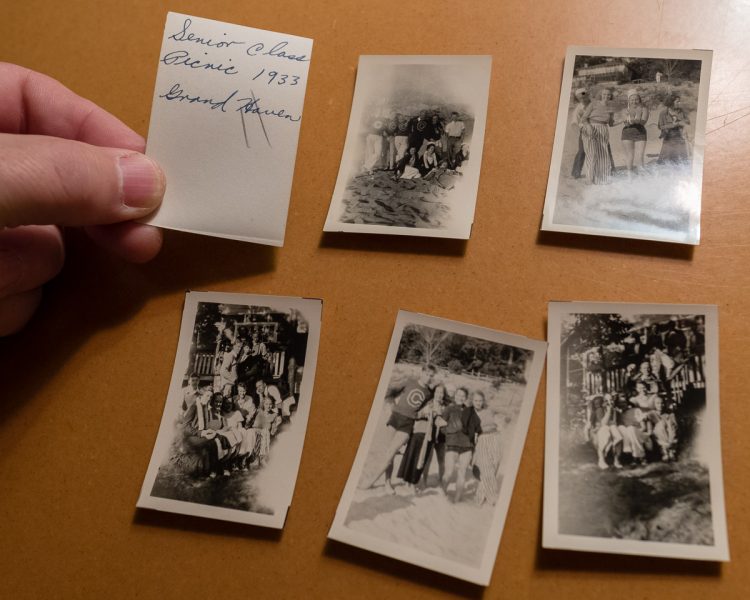 Senior Class
Picnic 1933
Grand Haven